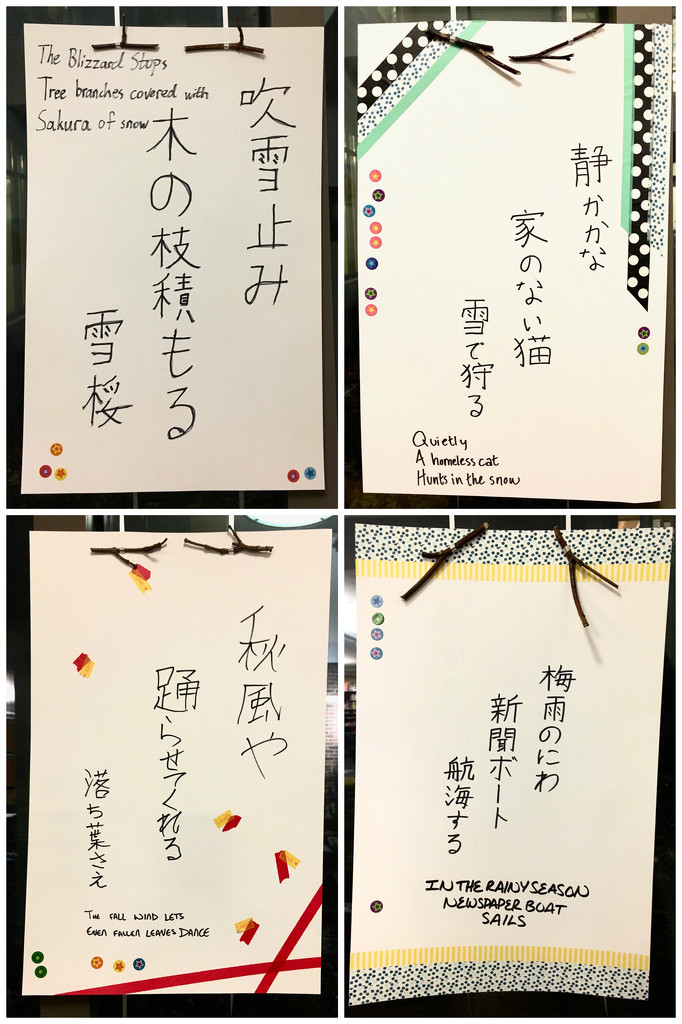 The Blizzard Stops
Tree branches covered with
Sakura of snow
吹雪止み
木の枝積もる
雪桜
静かかな
家のない猫
雪で狩る
Quietly
A homeless cat
Hunts in the snow
秋風や
踊らせてくれる
落ち葉さえ
THE FALL WIND LETS
EVEN FALLEN LEAVES DANCE
梅雨のにわ
新聞ボート
航海する
IN THE RAINY SEASON
NEWSPAPER BOAT
SAILS